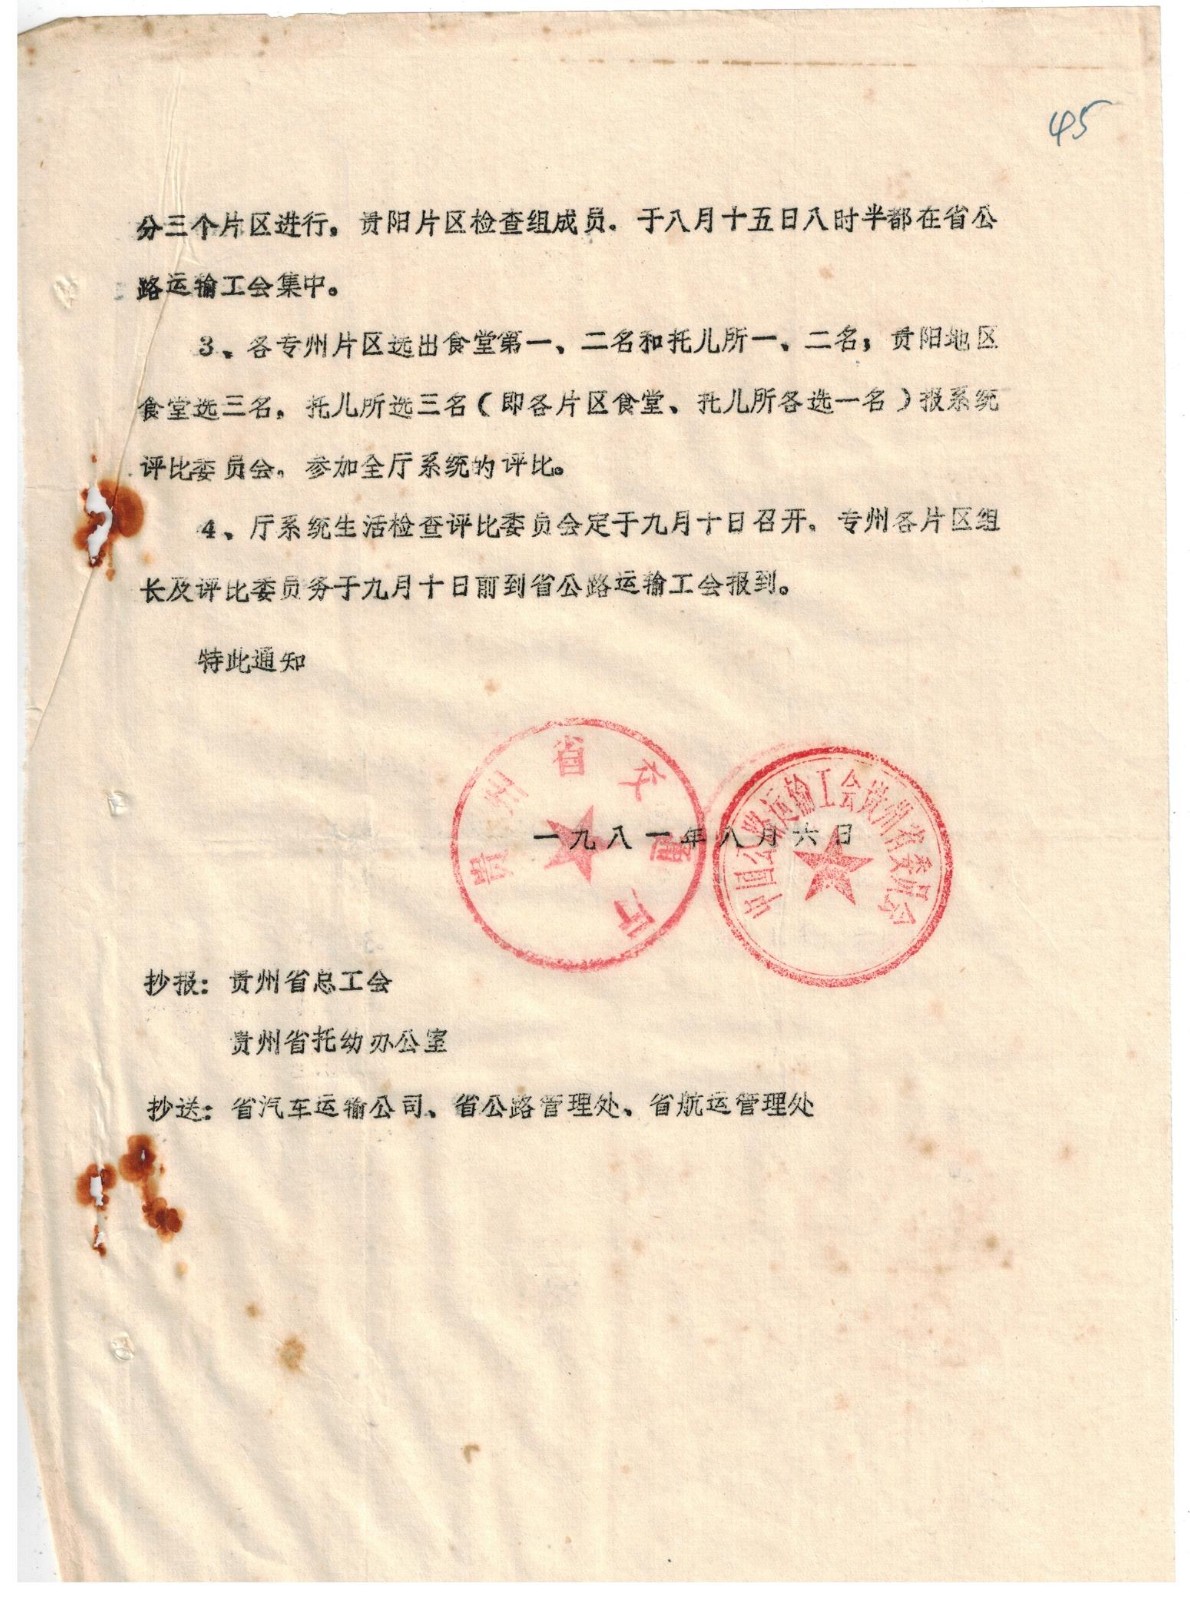 45
分三个片区进行，贵阳片区检查组成员，于八月十五日八时半都在省公
路运输工会集中。
3、各专州片区选出食堂第一、二名和托儿所一、二名；贵阳地区
食堂选三名，托儿所选三名（即各片区食堂、托儿所各选一名）报系统
评比委员会，参加全厅系统的评比。
4、厅系统生活检查评比委员会定于九月十日召开，专州各片区组
长及评比委员务于九月十日前到省公路运输工会报到。
特此通知
贵州省交通厅
中国公路运输工会贵州省委员会
一九八一年八月六日
抄报：贵州省总工会
贵州省托幼办公室
抄送：省汽车运输公司、省公路管理处、省航运管理处